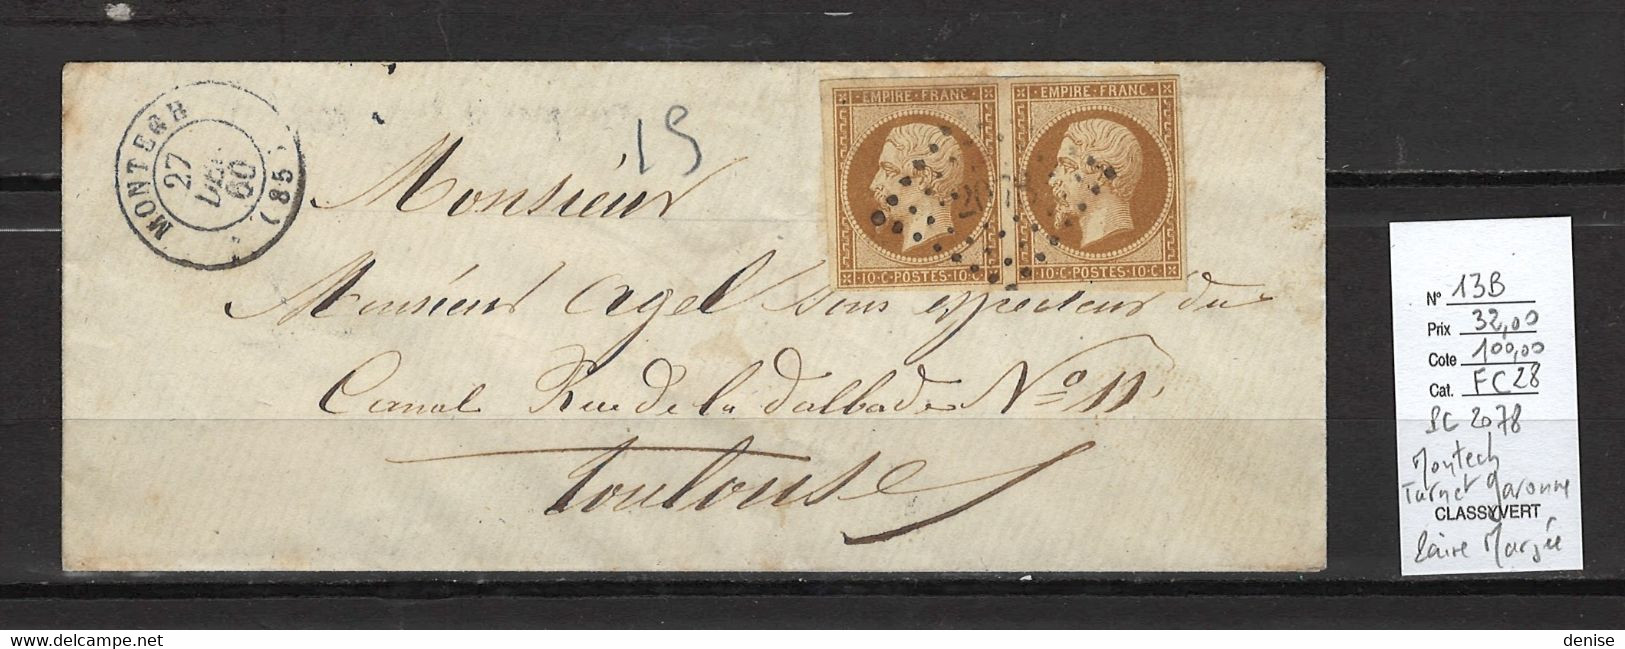 MONTECH
27
60
( 85 )
15
EMPIRE · FRANC · EMPIRE · FRANC ·
2078
10·C·POSTES·10·C· 10·C·POSTES·10·C·
Monsieur
Monsieur Agel sous inspecteur du
Canal Rue de la dalbade N° 11
Toulouse
N° 13B
Prix 32,00
Cote 100,00
Cat. FC28
PC 2078
Montech
Tarn et Garonne
CLASSYVERT
www.delcampe.net
denise